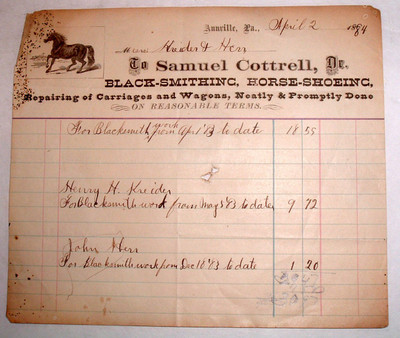 Annville, Pa., April 2 1884
Kreider & Herr
To Samuel Cottrell, Dr.
BLACK-SMITHING, HORSE-SHOEING,
Repairing of Carriages and Wagons, Neatly & Promptly Done
ON REASONABLE TERMS.
For Blacksmith work from Apr 1 '83 to date 18 55
Henry H. Kreider
For Blacksmith work from May 3 '83 to date 9 72
John Herr
For Blacksmith work from Dec 18 '83 to date 1 20